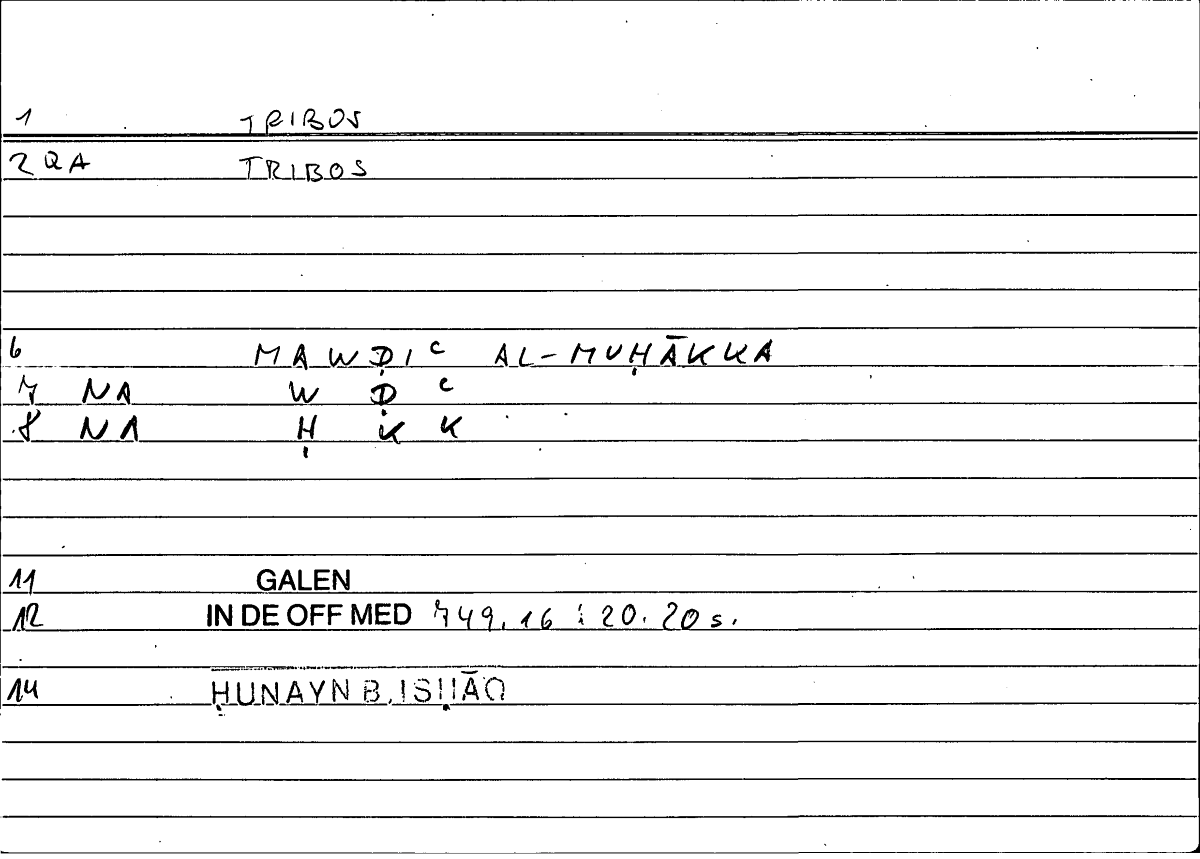 1 TRIBOS
2 QA TRIBOS
6 MAWḌIᶜ AL-MUḤĀKKA
7 NA W Ḍ ᶜ
8 NA Ḥ K K
11 GALEN
12 IN DE OFF MED 749,16 : 20.20 s.
14 ḤUNAYN B. ISḤĀQ